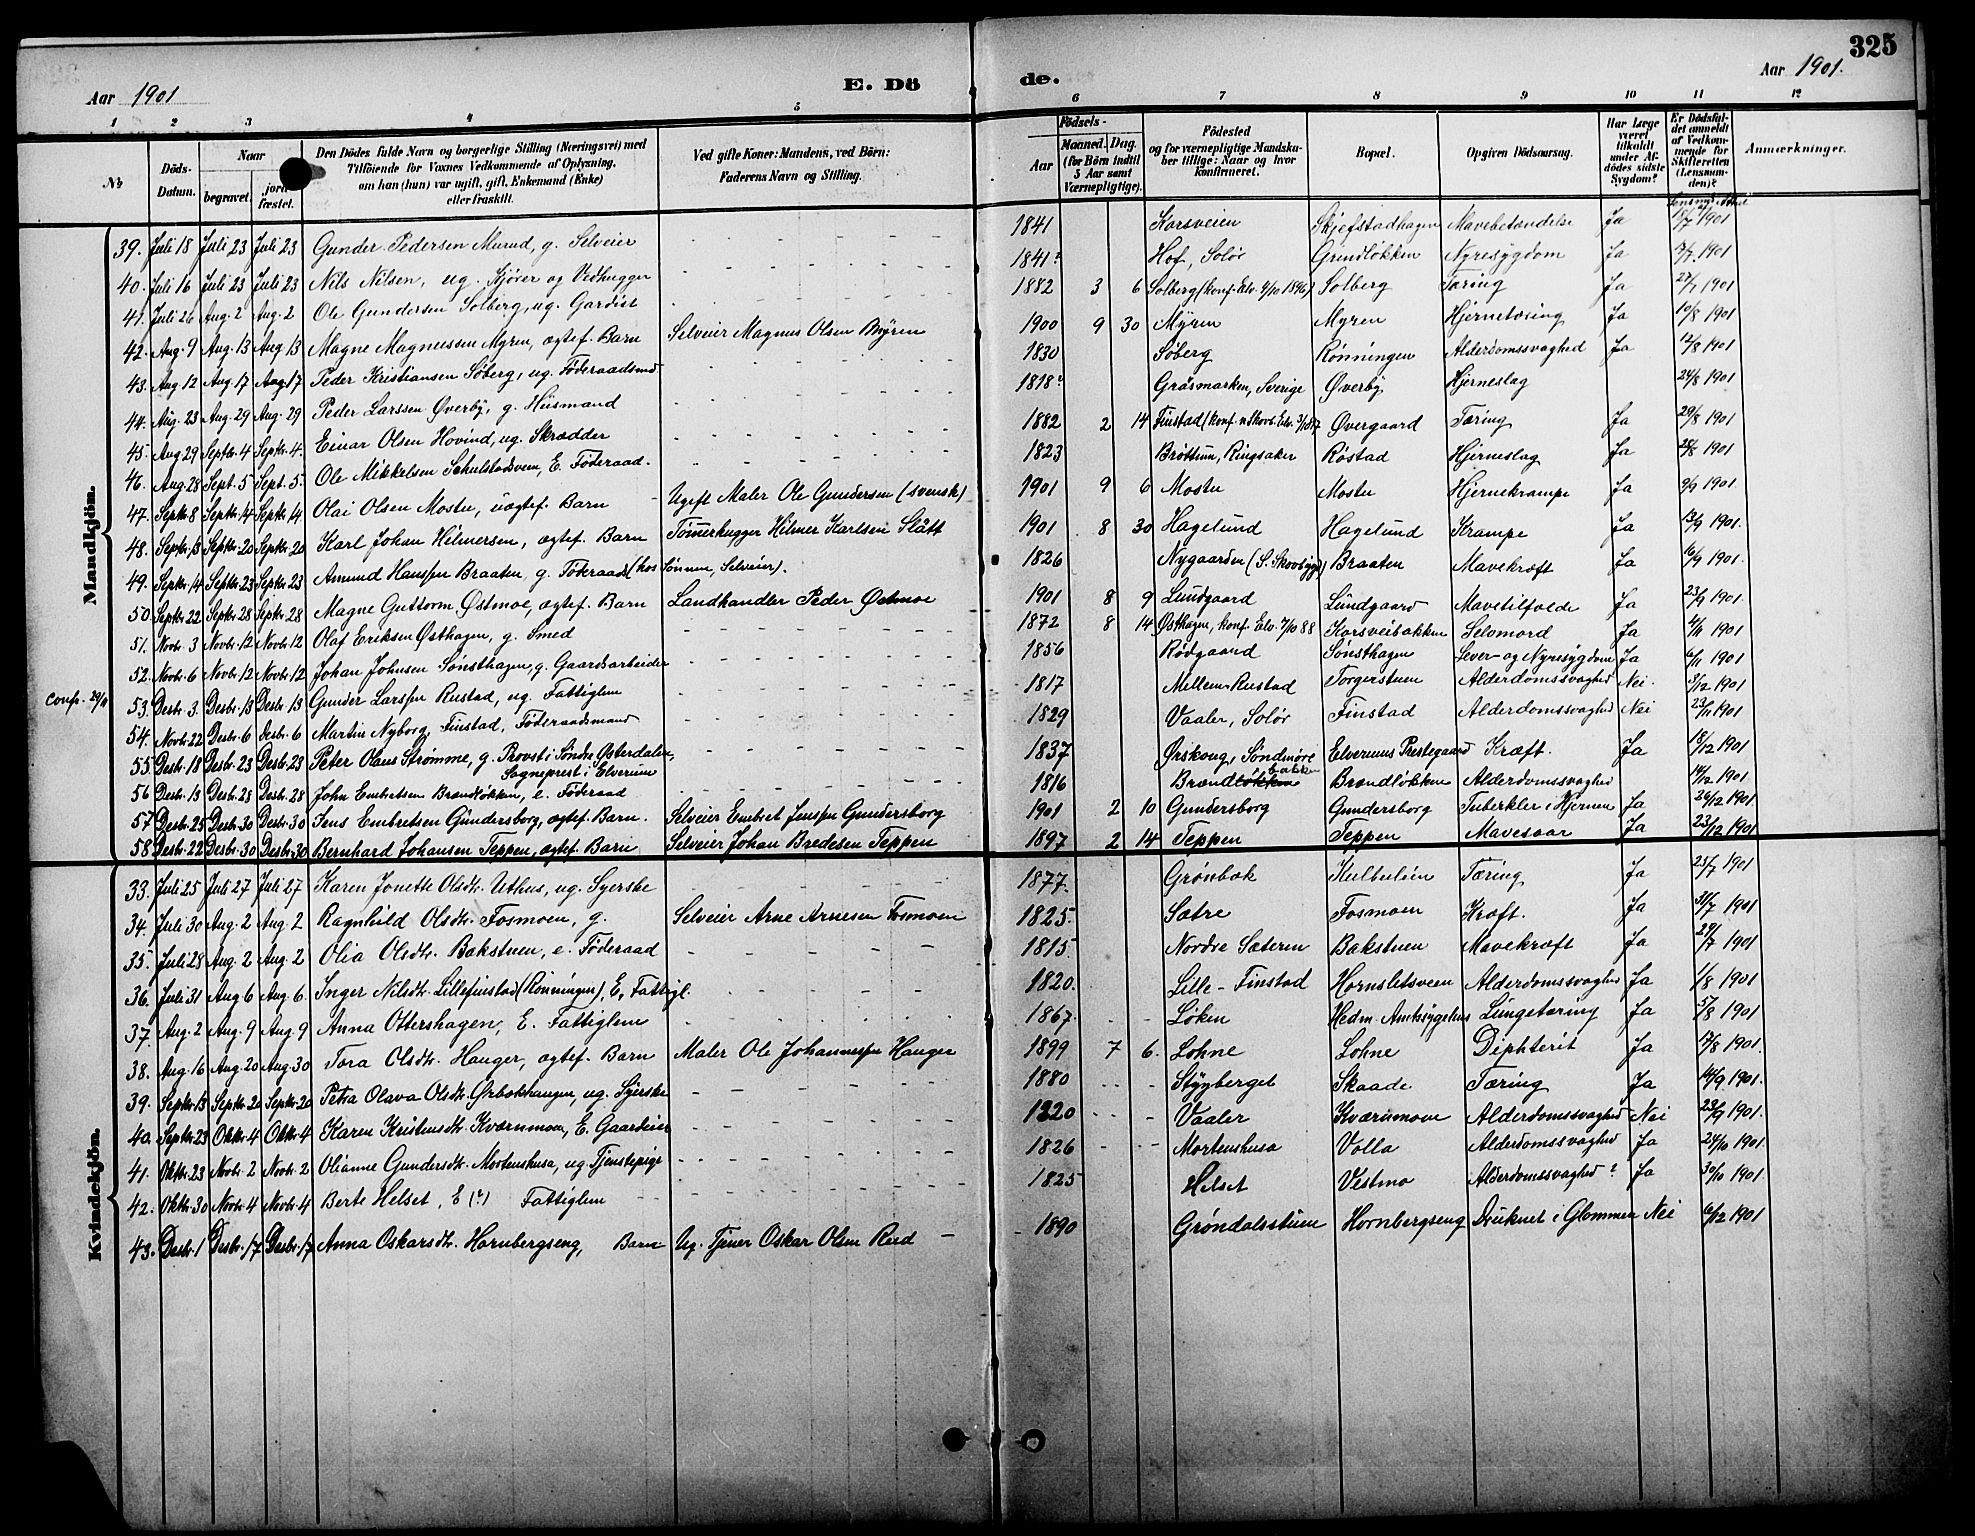 325
Aar 1901 E. Dö de. Aar 1901.
1 2 3 4 5 6 7 8 9 10 11 12
No Döds-Datum. Naar begravet. jordfæstet. Den Dödes fulde Navn og borgerlige Stilling (Næringsvei) med Tilföiende for Voxnes Vedkommende af Oplysning, om han (hun) var ugift, gift, Enkemand (Enke) eller fraskilt. Ved gifte Koner: Mandens, ved Börn: Faderens Navn og Stilling. Födsels- Aar Maaned. Dag. (for Börn indtil 5 Aar samt Værnepligtige). Födested og for værnepligtige Mandskaber tillige: Naar og hvor konfirmeret. Bopæl. Opgiven Dödsaarsag. Har Læge været tilkaldt under Afdödes sidste Sygdom? Er Dödsfaldet anmeldt af Vedkommende for Skifteretten (Lensmanden)? Anmærkninger.
Mandkjön.
39. Juli 18 Juli 23 Juli 23 Gunder Pedersen Murud, g. Selveier 1841 Korsveien Skjefstadhagen Mavebetændelse Ja 18/7 1901
40. Juli 16 Juli 23 Juli 23 Nils Nilsen, ug. Kjører og Vedhugger 1841? Hof, Solør Grundløkken Nyresygdom Ja 17/7 1901
41. Juli 26 Aug. 2 Aug. 2 Ole Gundersen Solberg, ug. Gardist 1882 3 6 Solberg (konf. Elv. 4/10 1896) Solberg Tæring Ja 27/7 1901
42. Aug. 9 Aug. 13 Aug. 13 Magne Magnussen Myren, ægtef. Barn Selveier Magnus Olsen Myren 1900 9 30 Myren Myren Hjernetæring Ja 10/8 1901
43. Aug 12 Aug. 17 Aug. 17 Peder Kristiansen Søberg, ug. Føderaadsmd 1830 Søberg Rønningen Alderdomssvaghed Ja 12/8 1901
44. Aug. 23 Aug. 29 Aug. 29 Peder Larssen Øverby, g. Husmand 1818? Gräsmarken, Sverige Øverby Hjerneslag 24/8 1901
45. Aug 29 Septbr. 4 Septr. 4. Einar Olsen Hovind, ug. Skrædder 1882 2 14 Finstad Øvergaard Tæring Ja 29/8 1901
46. Aug. 28 Sept. 5 Sept. 5. Ole Mikkelsen Schulstadsveen, E. Føderaad. 1823 Brøttum, Ringsaker Røstad Hjerneslag Ja 28/8 1901
47. Septr. 8 Septr. 14 Septr. 14 Olai Olsen Mostu, uægtef. Barn Ugift Maler Ole Gundersen (svensk) 1901 9 6 Mostu Mostu Hjernekrampe Ja 9/9 1901
48. Septr. 13 Septr. 20 Septr. 20 Karl Johan Hilmersen, ægtef. Barn Tømmerhugger Hilmer Karlsen Slått 1901 8 30 Hagelund Hagelund Krampe Ja 13/9 1901.
49. Septr. 14 Septr. 23 Septr. 23 Amund Hanssen Braaten, g. Føderaad (hos Sønnen, Selveier). 1826 Nygaarden (S. Skovbygd) Braaten Mavekræft Ja 16/9 1901.
50. Septr. 22 Septr. 28 Septr. 28 Magne Guttorm Østmoe, ægtef. Barn Landhandler Peder Østmoe 1901 8 9 Lundgaard Lundgaard Mavetilfælde Ja 23/9 1901.
51. Novbr. 3 Novbr. 12 Novbr. 12 Olaf Eriksen Østhagen, g. Smed 1872 8 14 Østhagen, konf. Elv. 7/10 88 Korsveibakken Selvmord Ja 4/11 1901
52. Novbr. 6 Novbr. 12 Novbr. 12 Johan Johnsen Sønsthagen, g. Gaardsarbeider 1856 Rødgaard Sønsthagen Lever- og Nyresygdom Ja 6/11 1901
Conf. 29/11 53. Desbr. 3. Desbr. 13 Desbr. 13 Gunder Larssen Rustad, ug. Fattiglem 1817 Mellem-Rustad Torgerstuen Alderdomssvaghed Nei. 3/12 1901
54. Novbr. 22 Desbr. 6 Desbr. 6 Martin Nyborg, Finstad, Føderaadsmand 1829 Vaaler, Solør Finstad Alderdomssvaghed Nei 23/11 1901
55. Desbr. 18 Desbr. 23 Desbr. 23 Peter Olaus Strømme, g. Provst i Søndre Østerdalen, Sogneprest i Elverum 1837 Ørskoug, Søndmøre Elverums Prestegaard Kræft. Ja 18/12 1901
56 Desbr. 13 Desbr. 28 Desbr. 28 John Embretsen Brændløkken, e. Føderaad 1816 Brændbakken Brændløkken Alderdomssvaghed 14/12 1901.
57 Desbr. 25 Desbr. 30 Desbr. 30 Jens Embretsen Gundersborg, ægtef. Barn. Selveier Embret Jenssen Gundersborg 1901 2 10 Gundersborg Gundersborg Tuberkler i Hjernen Ja 26/12 1901.
58 Desbr. 22 Desbr. 30 Desbr. 30 Bernhard Johansen Teppen, ægtef. Barn Selveier Johan Bredesen Teppen 1897 2 14 Teppen Teppen Mavesaar Ja 23/12 1901
Kvindekjön.
33. Juli 25 Juli 27 Juli 27 Karen Jonette Olsdtr. Uthus, ug. Syerske 1877. Grønbæk Kulbulien Tæring Ja 25/7 1901
34. Juli 30 Aug. 2 Aug. 2 Ragnhild Olsdtr. Fosmoen, g. Selveier Arne Arnesen Fosmoen 1825. Sætre Fosmoen Kræft. Ja 31/7 1901
35. Juli 28 Aug. 2 Aug. 2 Olia Olsdtr. Bakstuen, e. Føderaad 1815 Nordre Sæteren Bakstuen Mavekræft Ja 29/7 1901
36. Juli 31 Aug 6 Aug. 6. Inger Nilsdtr. Lillefinstad (Rønningen), E. Fattigl. 1820. Lille-Finstad Hornsletsveen Alderdomssvaghed Ja 1/8 1901
37. Aug. 2 Aug. 9 Aug. 9 Anna Ottershagen, E. Fattiglem 1867. Løken Hedm. Amtssygehus Lungetæring Ja 5/8 1901
38. Aug. 16 Aug. 20 Aug. 30 Tora Olsdtr. Hauger, ægtef. Barn Maler Ole Johannessen Hauger 1899 7 6. Løhne Løhne Diphterit Ja 17/8 1901.
39. Septr. 13 Septr. 20 Septr. 20 Petra Olava Olsdtr. Ørbækhaugen, ug. Syerske 1880 Stygberget Skaade Tæring Ja 14/9 1901.
40. Septr. 23 Oktr. 4 Oktr. 4 Karen Kristensdtr. Kværnmoen, E. Gaardeier 1820 Vaaler Kværnmoen Alderdomssvaghed Nei 23/9 1901.
41. Oktr. 23 Novbr. 2 Novbr. 2 Olianne Gundersdtr. Mortenshusa, ug. Tjenstepige 1826 Mortenshusa Volla Alderdomssvaghed Ja 24/10 1901.
42. Oktr. 30 Novbr. 4 Novbr. 4 Berte Helset, E (?) Fattiglem 1825 Helset Vestmo Alderdomssvaghed? Ja 30/10 1901.
43. Desbr. 1 Desbr. 17 Desbr. 17 Anna Oskarsdtr. Hornbergseng, Barn Ug. Tjener Oskar Olsen Rud 1890 Grøndalsstuen Hornbergseng Druknet i Glommen Nei 6/12 1901